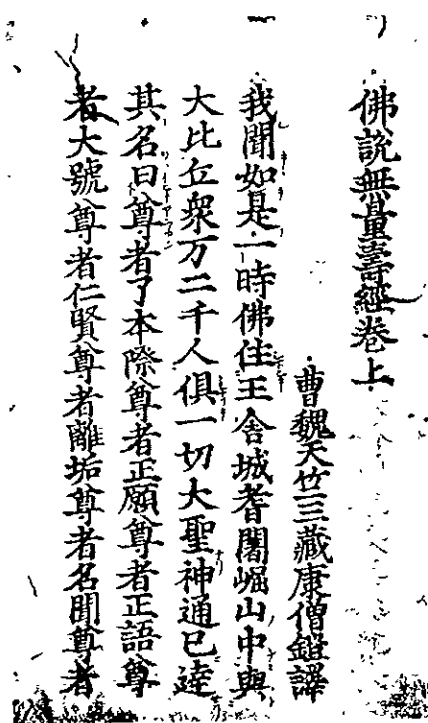 佛說無量壽經卷上
曹魏天竺三藏康僧鎧譯
我聞如是一時佛住王舍城耆闍崛山中與
大比丘衆万二千人俱一切大聖神通已達
其名曰尊者了本際尊者正願尊者正語尊
者大號尊者仁賢尊者離垢尊者名聞尊者